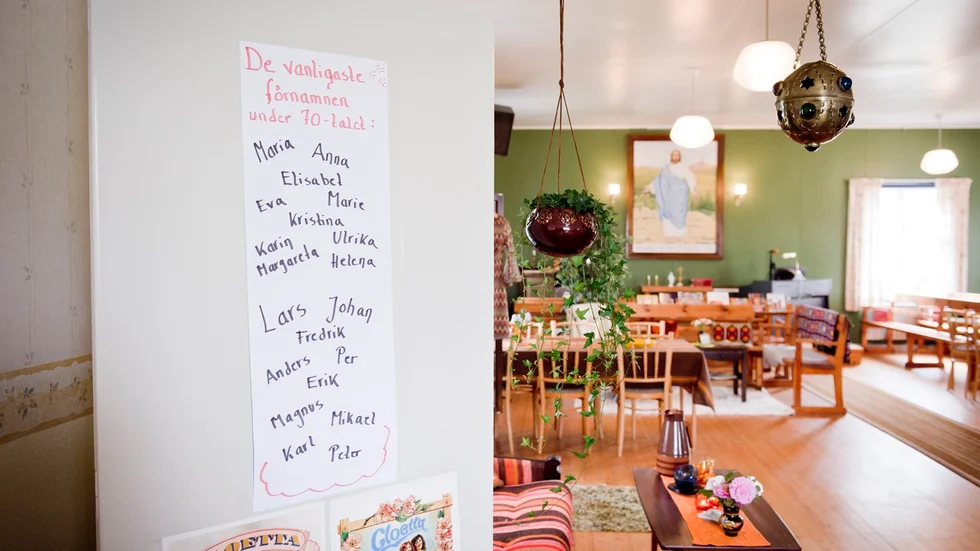 De vanligaste
förnamnen
under 70-talet:
Maria Anna
Elisabet
Eva Marie
Kristina
Karin Ulrika
Margareta Helena
Lars Johan
Fredrik
Anders Per
Erik
Magnus Mikael
Karl Peter
OETTA
Cloetta